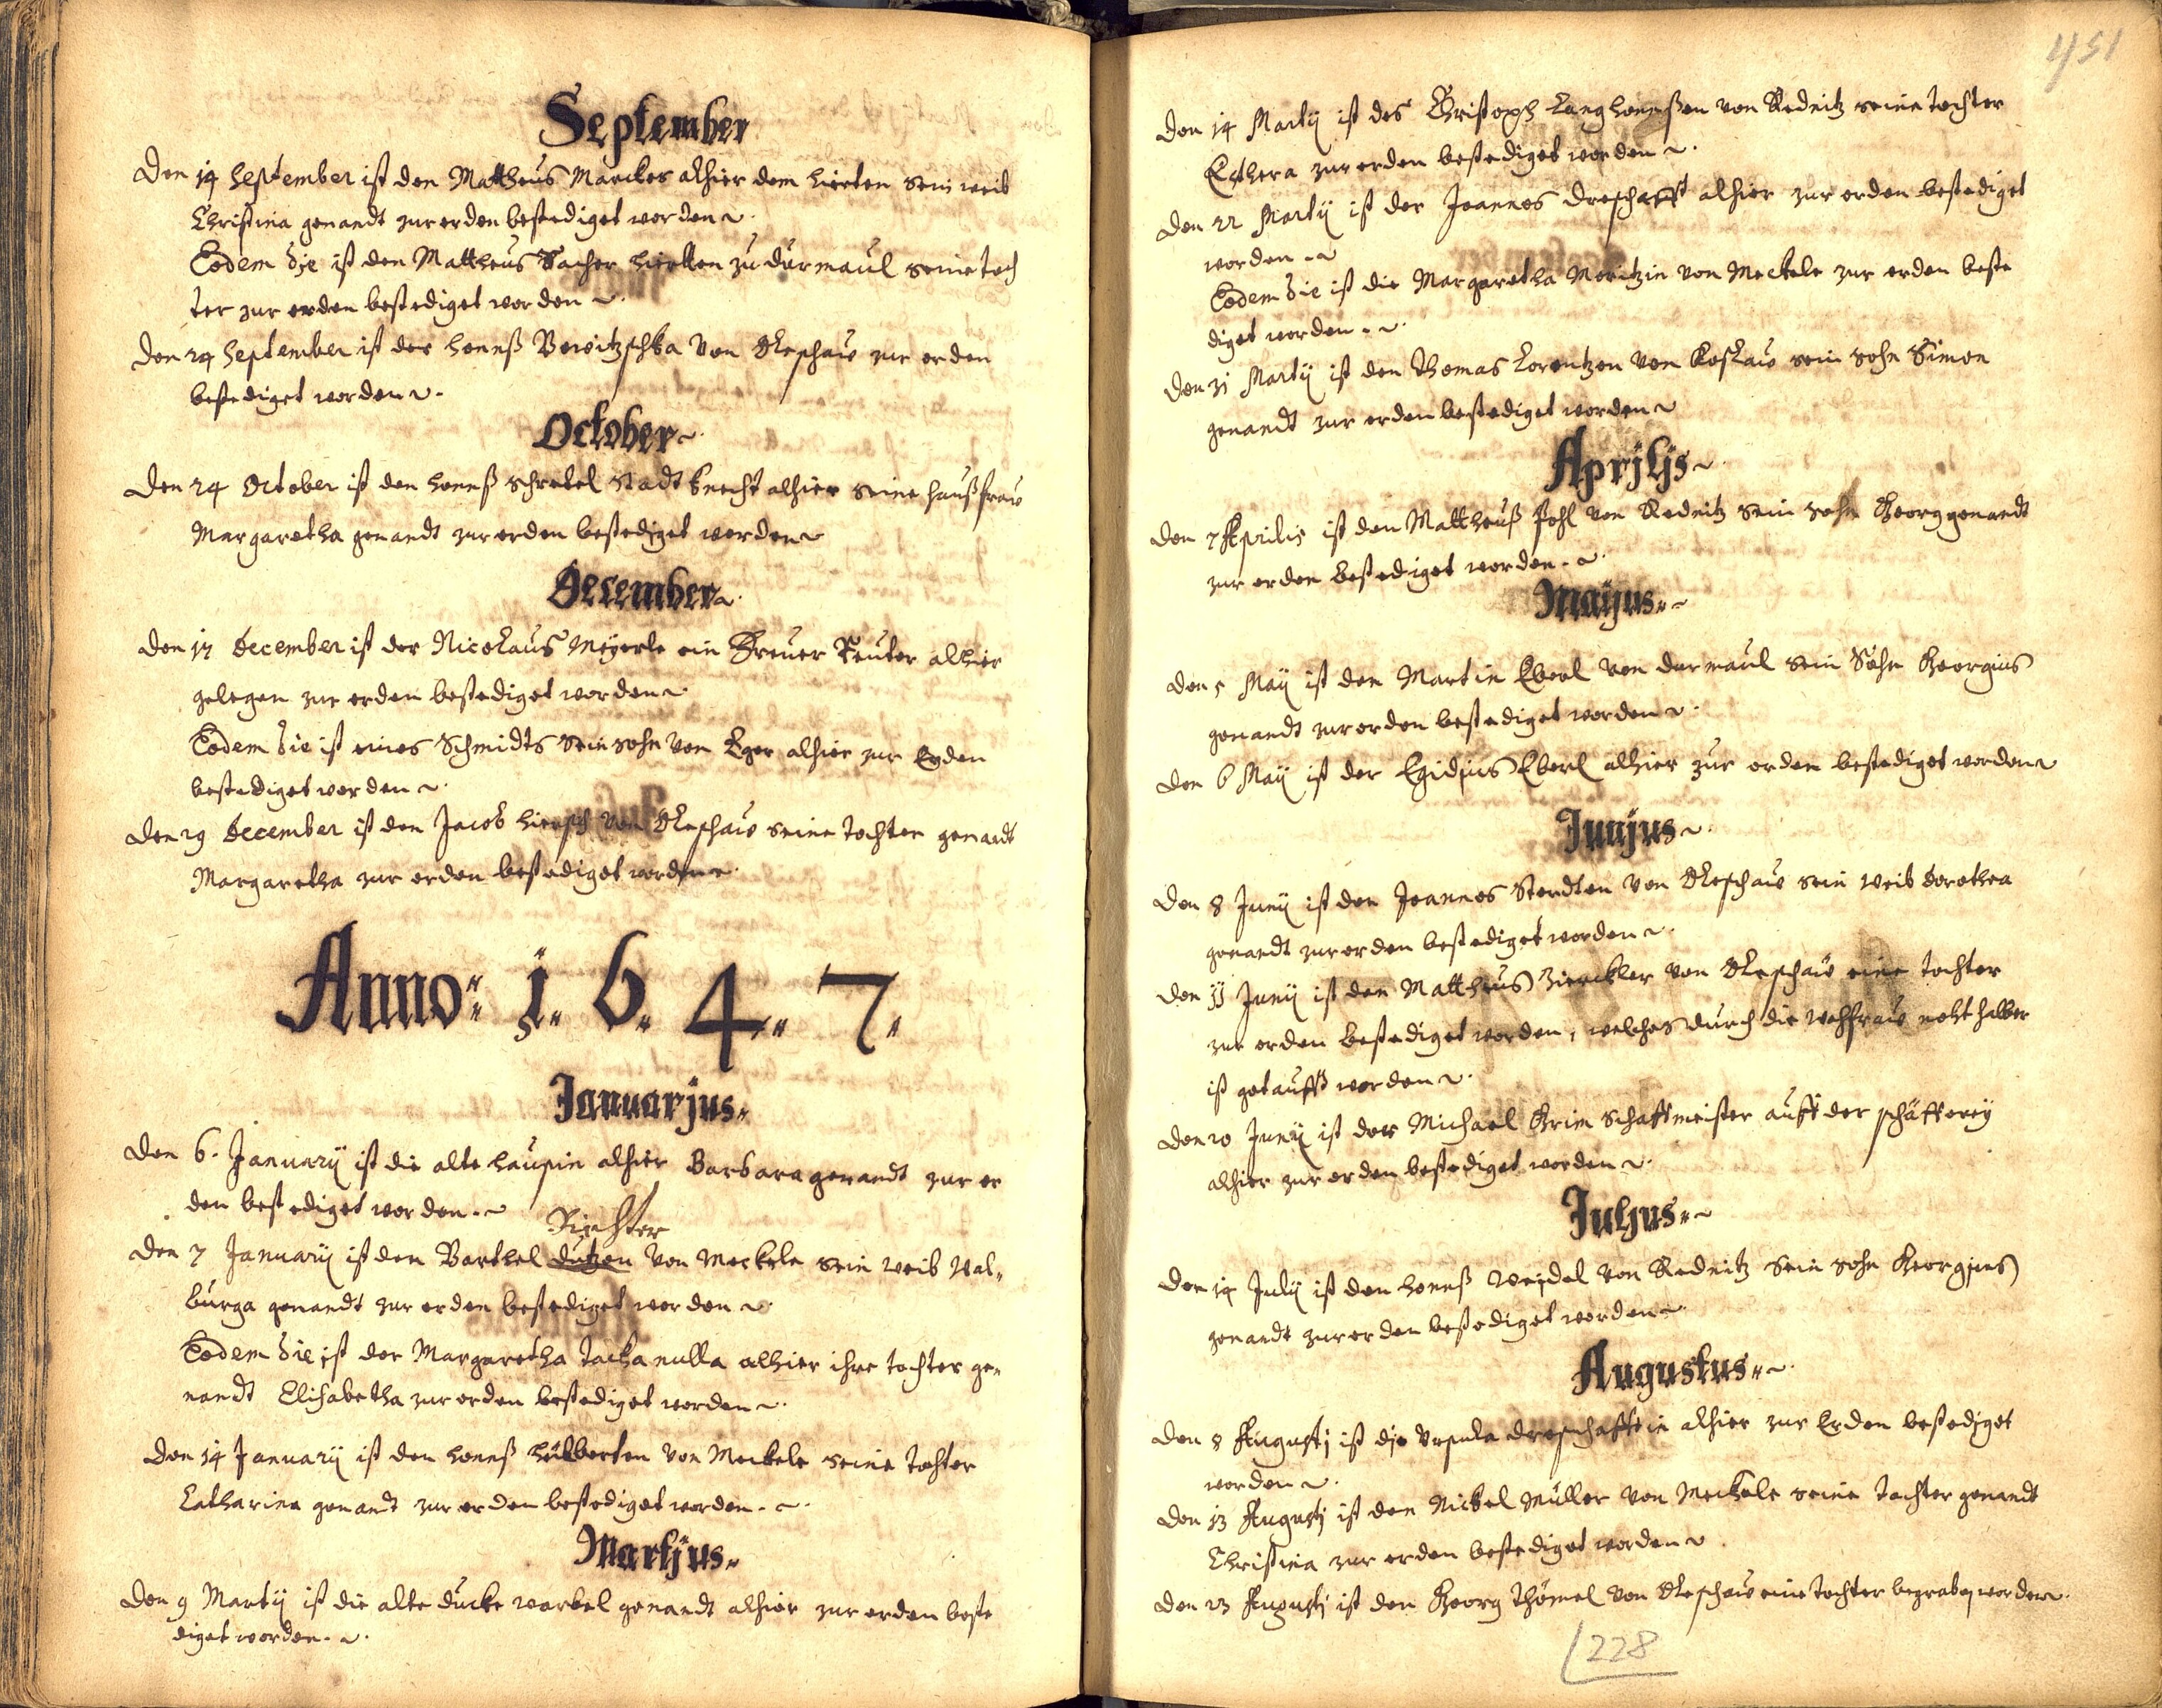 September
Den 14 September ist den Mattheus Marckes alhier dem hierten sein weib
Christina genandt zur erden bestediget worden
Eodem Die ist den Mattheus hierten zu Dürmaul seine toch
ter zur erden bestediget worden
Den 24 September ist der hannß von Pleschaw zur erden
bestediget worden
October
Den 24 October ist den hannß schretel stadtknecht alhier seine haußfraw
Margaretha genandt zur erden bestediget worden
December
Den 17 December ist der Nicolaus Meyerle ein Reuter alhier
gelegen zur erden bestediget worden
Eodem Die ist eines Schmidts sein sohn von Eger alhier zur Erden
bestediget worden
Den 29 December ist den Jacob hiersch von Pleschaw seine tochter genandt
Margaretha zur erden bestediget worden
Anno 1647
Januarjus
Den 6. Januarij ist die alte alhier Barbara genandt zur er
den bestediget worden
Richter
Den 7 Januarij ist den Barthel dutzen von Meckele sein weib Wal
burga genandt zur erden bestediget worden
Eodem Die ist der Margaretha alhier ihre tochter ge
nandt Elisabetha zur erden bestediget worden
Den 14 Januarij ist den hannß von Meckele seine tochter
Catharina genandt zur erden bestediget worden
Martjus
Den 9 Martij ist die alte genandt alhier zur erden beste
diget worden
451
Den 14 Martij ist des Christoph Langhannßen von Rednitz seine tochter
Esthera zur erden bestediget worden
Den 22 Martij ist der Joannes Dreschafft alhier zur erden bestediget
worden
Eodem Die ist die Margaretha Moritzin von Meckele zur erden beste
diget worden
Den 31 Martij ist den Thomas Lorentzen von sein sohn Simon
genandt zur erden bestediget worden
Aprjljs
Den 7 Aprilis ist den Mattheuß Pohl von Rednitz sein sohn Georg genandt
zur erden bestediget worden
Maijus
Den 5 Maij ist den Martin Eberl von Dürmaul sein Sohn Georgius
genandt zur erden bestediget worden
Den 6 Maij ist der Egidjus Eberl alhier zur erden bestediget worden
Junjus
Den 8 Junij ist den Joannes von Pleschaw sein weib Dorothea
genandt zur erden bestediget worden
Den 11 Junij ist den Mattheus von Pleschaw eine tochter
zur erden bestediget worden, welches durch die wehfraw noht halber
ist getaufft worden
Den 20 Junij ist der Michael Grim Schaffmeister auff der schäfferey
alhier zur erden bestediget worden
Juljus
Den 14 Julij ist den hannß Weidel von Rednitz sein sohn Georgjus
genandt zur erden bestediget worden
Augustus
Den 8 Augustj ist dje Ursula Dreschafftin alhier zur Erden bestediget
worden
Den 13 Augustj ist den Nickel Müller von Meckele seine tochter genandt
Christina zur erden bestediget worden
Den 23 Augustj ist den Georg Thömel von Pleschaw eine tochter begraben worden
228